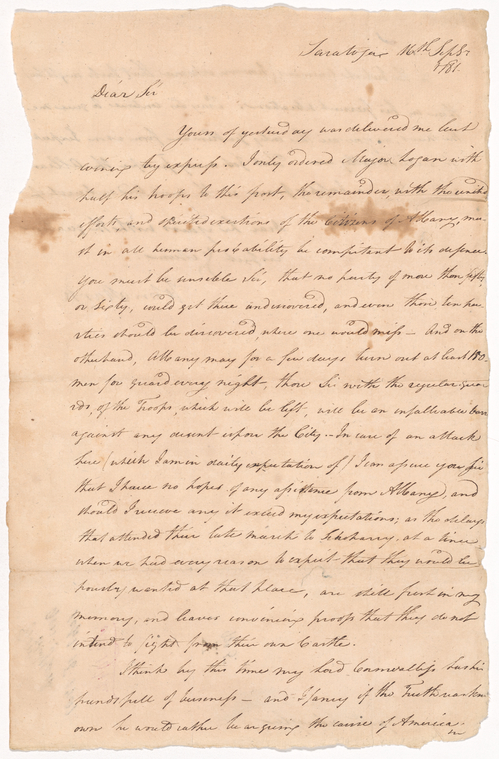 Saratoga 16th Sepbr
/81.
Dear Sir
Yours of yesterday was delivered me last
evening by express. I only ordered Major Logan with
half his troops to this post, the remainder, with the united
efforts and spirited exertions of the Citizens of Albany, mu-
st in all human probability be competent to its defence.
You must be sensible Sir, that no party of more than fifty
or sixty, could get there undiscovered, and even those ten par-
ties should be discovered, where one would miss — And on the
other hand, Albany may for a few days turn out at least 150
men for guard every night, those Sir with the regular gua-
rds, of the Troops, which will be left, will be an infallible barr
against any descent upon the City — In case of an attack
here (which I am in daily expectation of) I can assure you Sir
that I have no hopes of any assistance from Albany, and
should I receive any it exceed my expectations; as the delays
that attended their late march to Schoharry, at a time
when we had every reason to expect that they would be
hourly wanted at that place, are still fresh in my
memory, and leaves convincing proofs that they do not
intend to fight from their own Castle.
I think by this time my Lord Cornwallis
full of business — and I fancy if the Truth was kn
own he would rather be arguing the cause of America